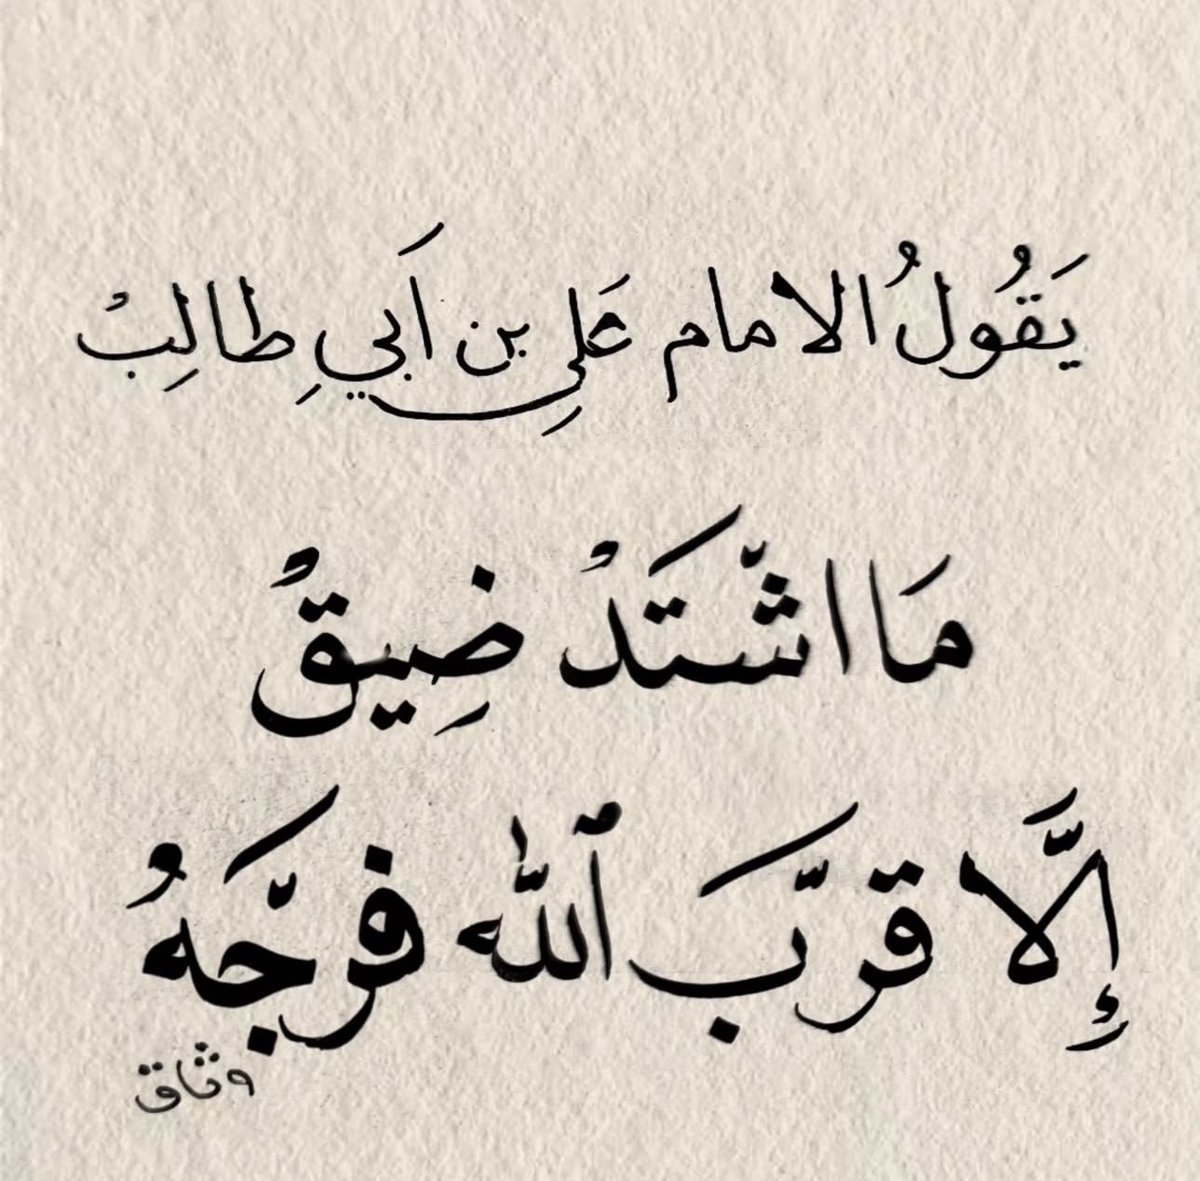 يَقُولُ الامام عَلِي بن اَبيِ طالِبْ
مَا اشّتَدْ ضِيقْ
إِلَّا قرَّبَ ٱللّه فرَّجَهُ
وثاق